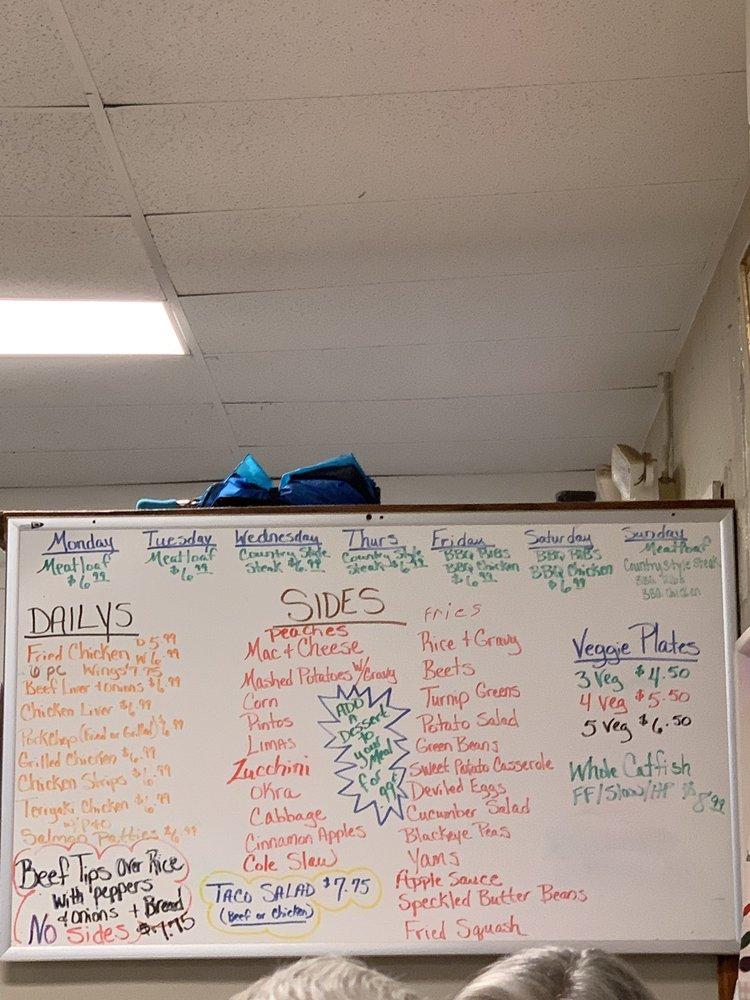 Monday
Meatloaf
$6.99
Tuesday
Meatloaf
$6.99
Wednesday
Country Style
Steak $6.99
Thurs
Country Style
Steak $6.99
Friday
BBQ Ribs
BBQ Chicken
$6.99
Saturday
BBQ RIBS
BBQ Chicken
$6.99
Sunday
Meatloaf
Country Style Steak
BBQ Ribs
BBQ Chicken
DAILYS
Fried Chicken D 5.99
W 6.99
6 pc Wings $7.75
Beef Liver + onions $6.99
Chicken Liver $6.99
PorkChop (Fried or Grilled) $6.99
Grilled Chicken $6.99
Chicken Strips $6.99
Teriyaki Chicken $6.99
Salmon Patties $6.99
Beef Tips Over Rice
with peppers
+ onions + Bread
No Sides $7.75
SIDES
Peaches
Mac + Cheese
Mashed Potatoes w/Gravy
Corn
Pintos
LIMAS
Zucchini
OKra
Cabbage
Cinnamon Apples
Cole Slaw
TACO SALAD $7.75
(Beef or Chicken)
ADD
A
Dessert
to
your
Meal
for
.99¢
fries
Rice + Gravy
Beets
Turnip Greens
Potato Salad
Green Beans
Sweet Potato Casserole
Deviled Eggs
Cucumber Salad
Blackeye Peas
Yams
Apple Sauce
Speckled Butter Beans
Fried Squash
Veggie Plates
3 Veg $4.50
4 Veg $5.50
5 Veg $6.50
Whole Catfish
FF/Slaw/HP $8.99